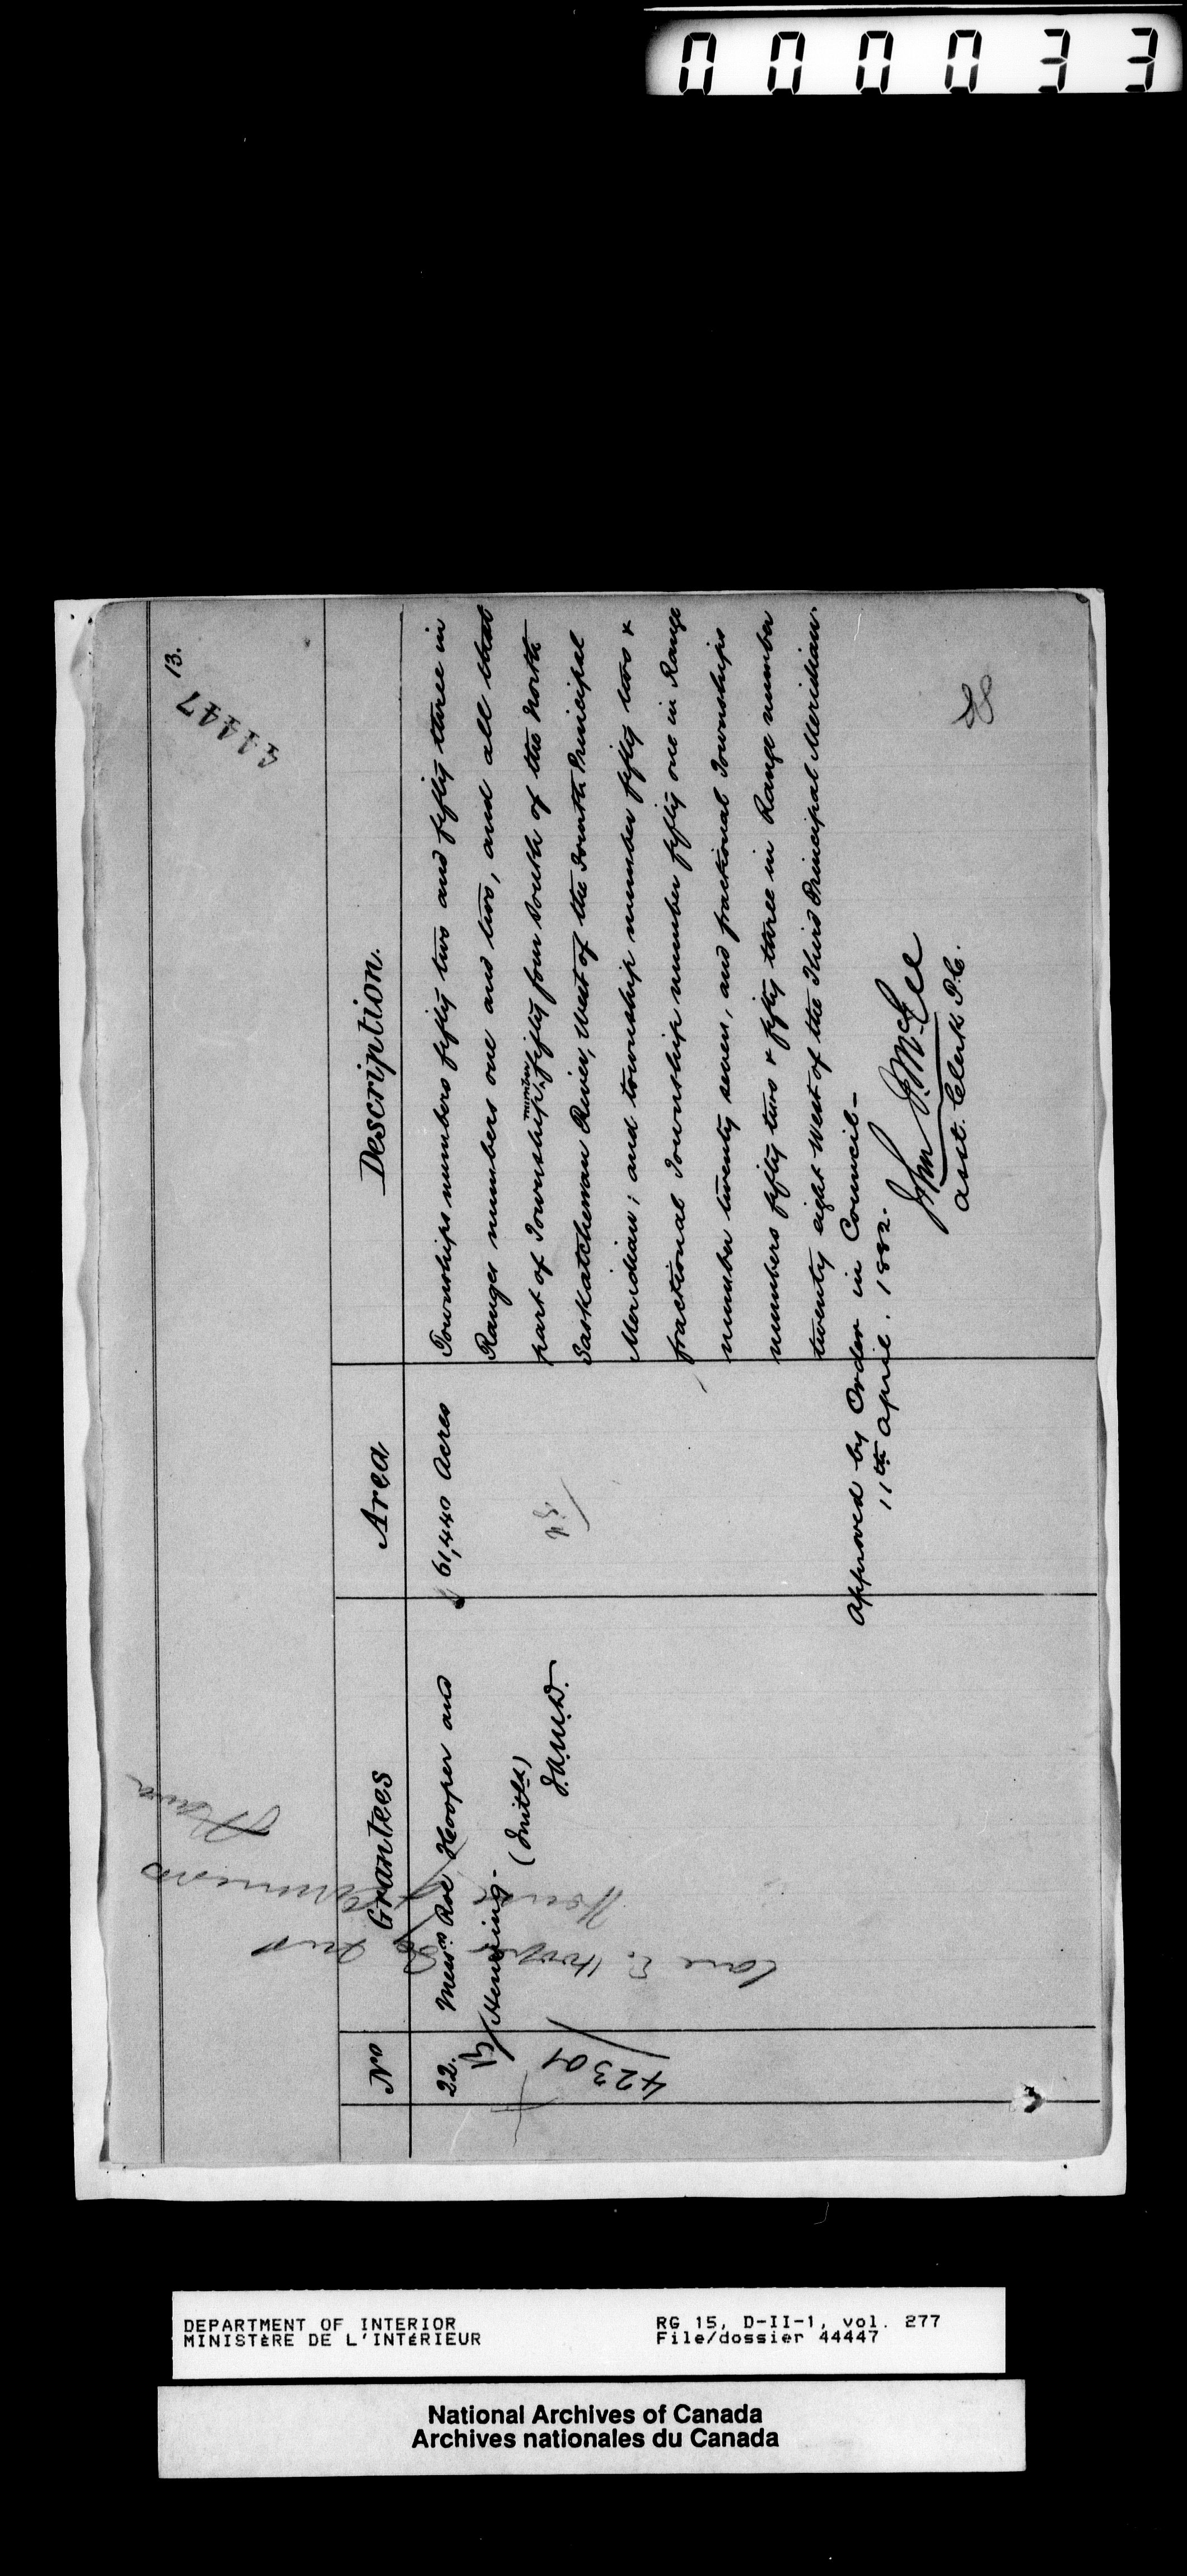 000033
13.
44447
No Grantees Area Description.
22. Messrs Roe Hooper and 61,440 Acres Townships numbers fifty two and fifty three in
Henning - Ranges numbers one and two, and all that
(Initld) part of Township number fifty four South of the North
J.A.M.D. Saskatchewan River, West of the Fourth Principal
Meridian; and township number fifty two &
fractional Township number fifty one in Range
number twenty seven, and fractional Townships
numbers fifty two & fifty three in Range number
twenty eight West of the Third Principal Meridian.
42301
Approved by Order in Council -
11th April. 1882.
John J. McGee
Asst. Clerk P.C.
28
DEPARTMENT OF INTERIOR
MINISTÈRE DE L'INTÉRIEUR
RG 15, D-II-1, vol. 277
File/dossier 44447
National Archives of Canada
Archives nationales du Canada